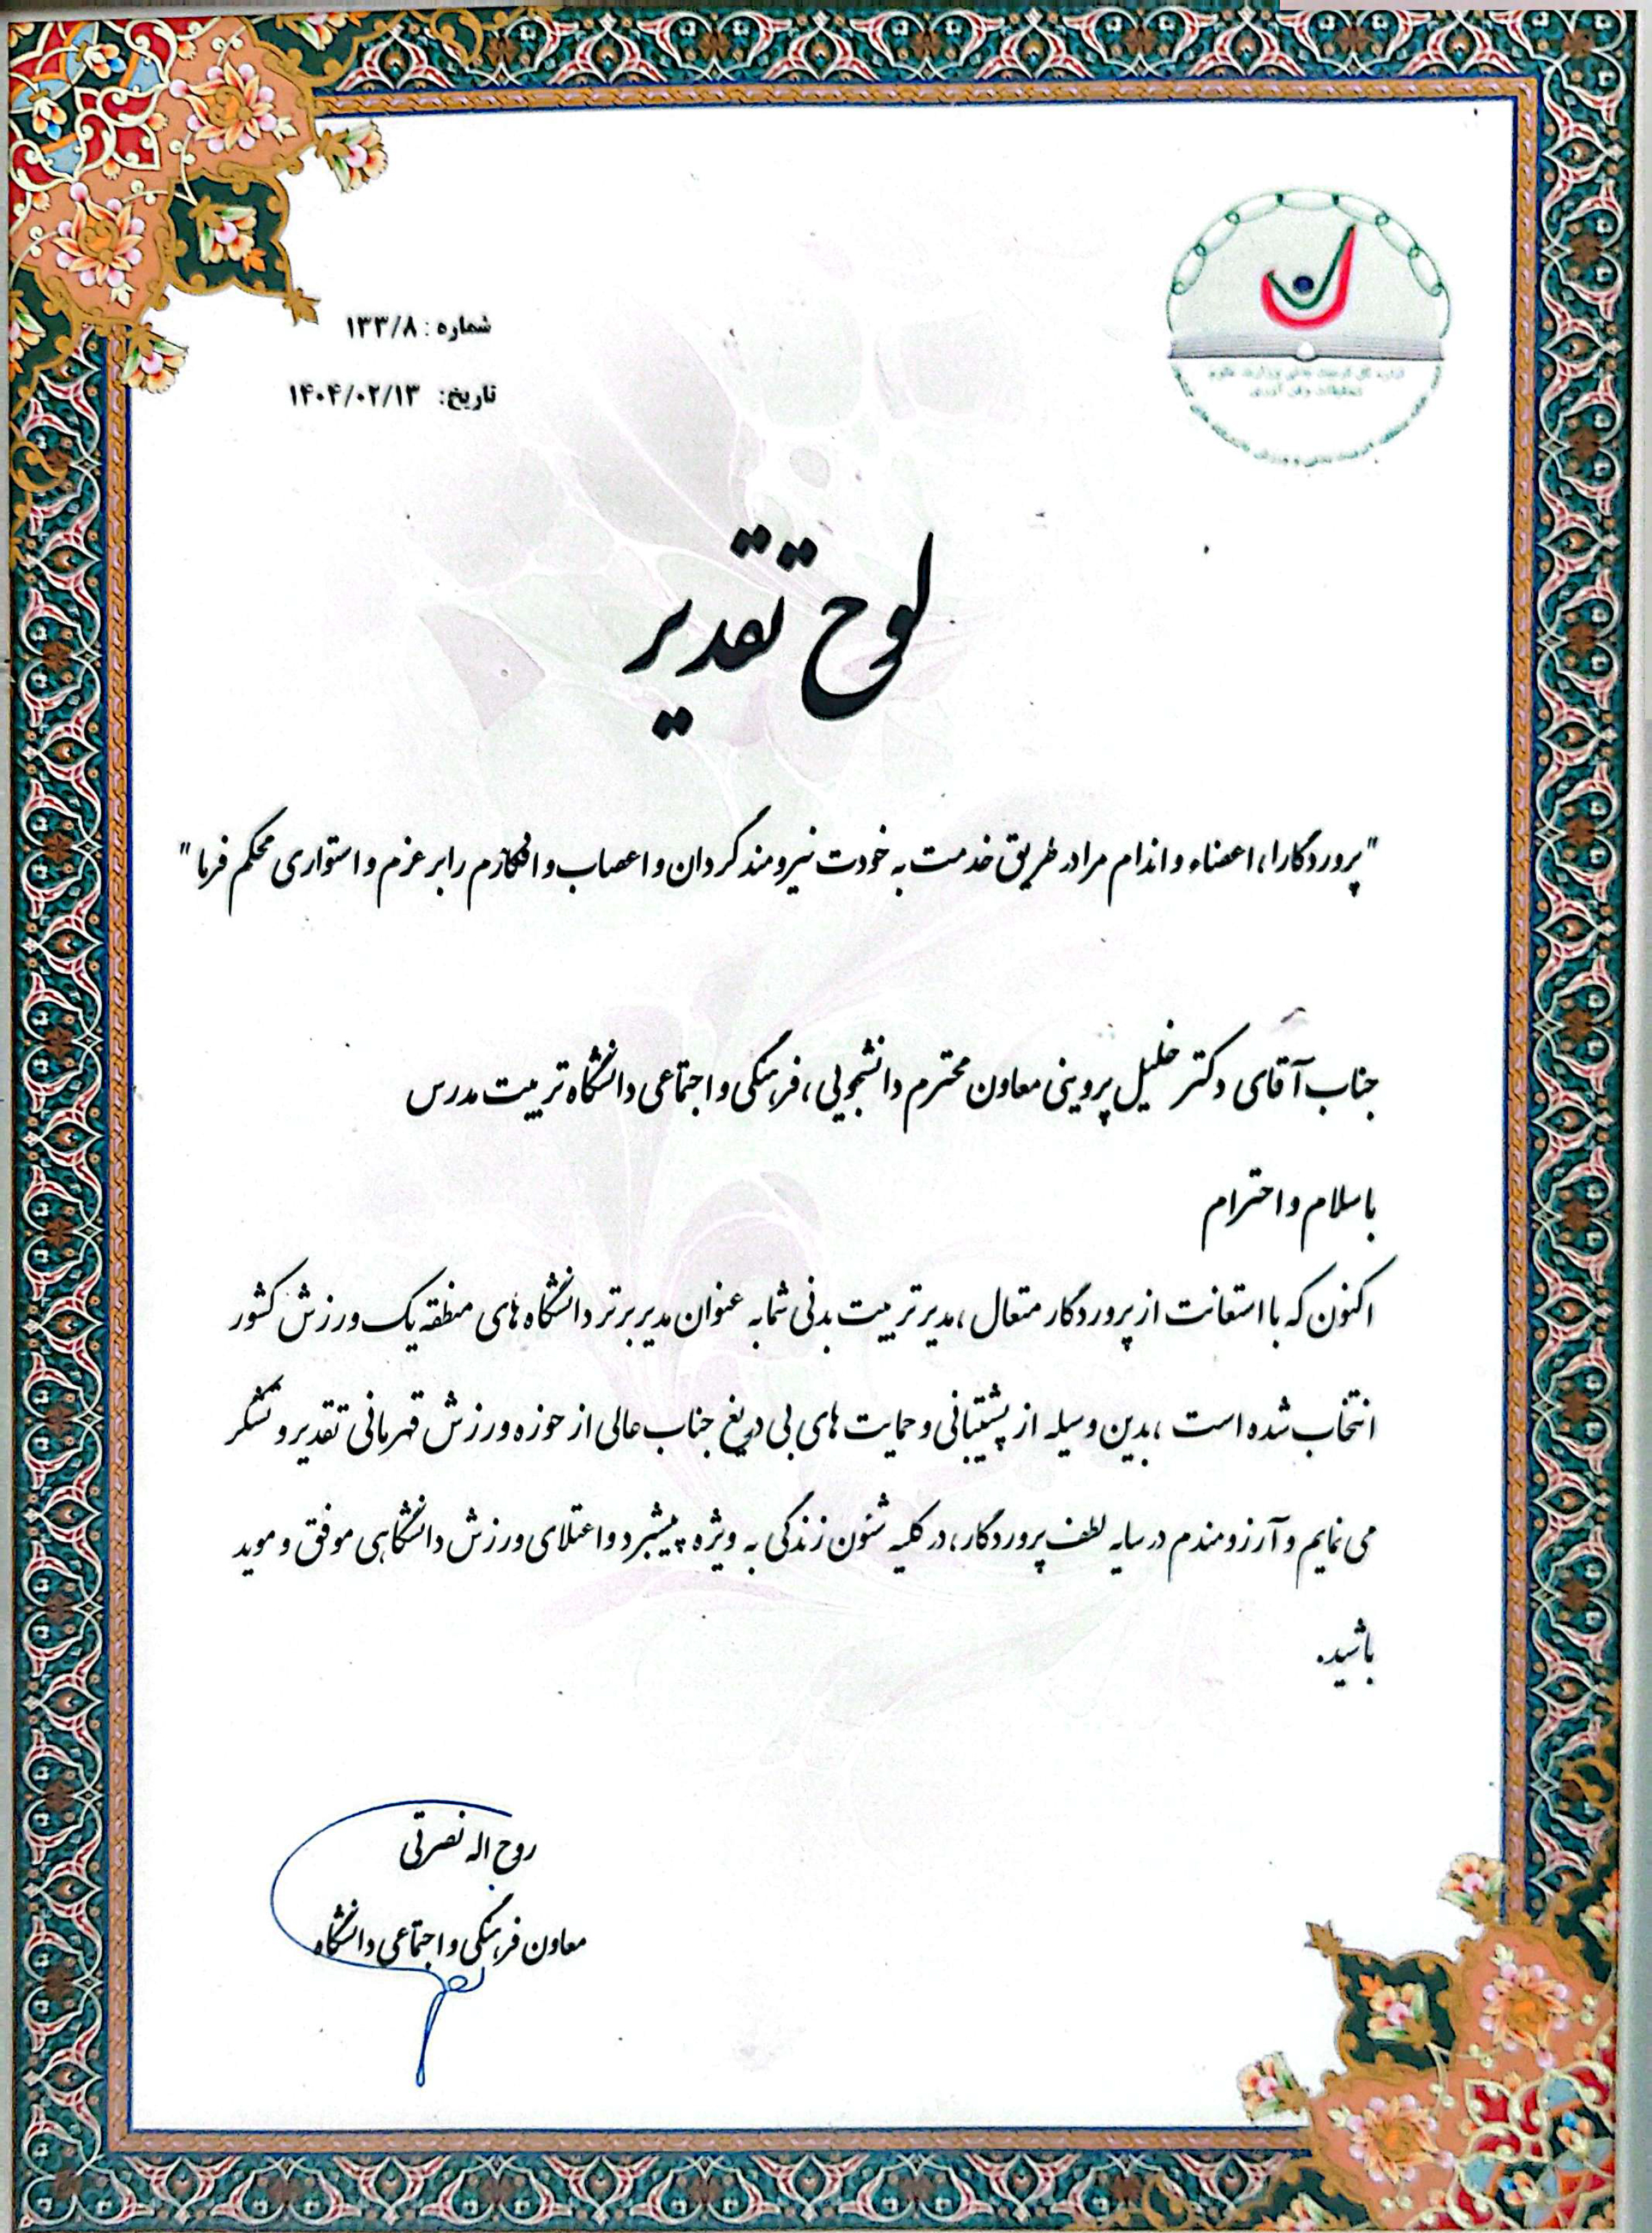 شماره: ۱۳۳/۸
تاریخ: ۱۴۰۴/۰۲/۱۳
اداره کل تربیت بدنی وزارت علوم
تحقیقات و فن آوری
لوح تقدیر
"پروردگارا، اعضاء و اندام مرا در طریق خدمت به خودت نیرومند گردان و اعصاب و افکارم را بر عزم و استواری محکم فرما"
جناب آقای دکتر خلیل پروینی معاون محترم دانشجویی، فرهنگی و اجتماعی دانشگاه تربیت مدرس
با سلام و احترام
اکنون که با استعانت از پروردگار متعال، مدیر تربیت بدنی شما به عنوان مدیر برتر دانشگاه های منطقه یک ورزش کشور
انتخاب شده است، بدین وسیله از پشتیبانی و حمایت های بی دریغ جناب عالی از حوزه ورزش قهرمانی تقدیر و تشکر
می نمایم و آرزومندم در سایه لطف پروردگار، در کلیه شئون زندگی به ویژه پیشبرد و اعتلای ورزش دانشگاهی موفق و موید
باشید.
روح اله نصرتی
معاون فرهنگی و اجتماعی دانشگاه